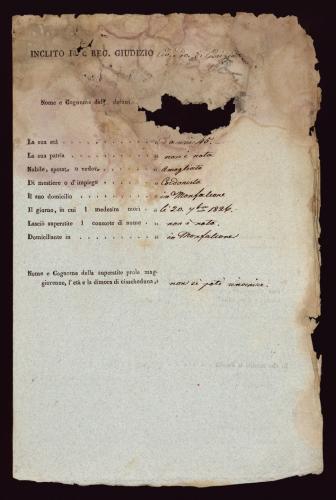 INCLITO I. R. REG. GIUDIZIO
Nome e Cognome del defunto
La sua età „ d'anni 46.
La sua patria „ non è nota
Nubile, sposat. o vedov. „ Amogliato
Di mestiere o d'impiego „
Il suo domicilio „ in Monfalcone
Il giorno, in cui l medesim morì „ li 20. 7bre 1824.
Lasciò superstite l consorte di nome „ non è nota.
Domiciliante in „ in Monfalcone
Nome e Cognome della superstite prole mag-
giorenne, l'età e la dimora di ciascheduna, „ non si potè